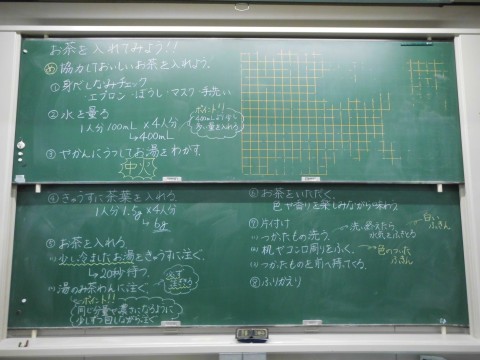 お茶を入れてみよう!!
め 協力しておいしいお茶を入れよう。
① 身だしなみチェック
エプロン・ぼうし・マスク・手洗い
② 水を量る
1人分100mL×4人分
↳400mL
ポイント!!
400mLより少し
多い量を入れる
③ やかんにうつしてお湯をわかす。
中火
④ きゅうすに茶葉を入れる
1人分1.5g×4人分
↳6g
⑤ お茶を入れる
(1) 少し冷ましたお湯をきゅうすに注ぐ。
→20秒待つ。
(2) 湯のみ茶わんに注ぐ
必ず
注ぎきる
ポイント!!
同じ分量や濃さになるように
少しずつ回しながら注ぐ
⑥ お茶をいただく。
色や香りを楽しみながら味わう。
⑦ 片付け
(1) つかったもの洗う。
→洗い終えたら
水気をふきとる
白い
ふきん
(2) 机やコンロ周りをふく。
→色のついた
ふきん
(3) つかったものを前へ持ってくる。
⑧ ふりかえり